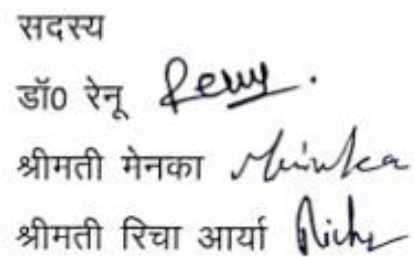 सदस्य
डॉ0 रेनू Renu.
श्रीमती मेनका Meinka
श्रीमती रिचा आर्या Richa